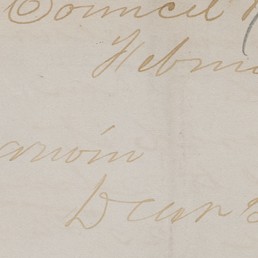 Council
Febru
arwin
Dear